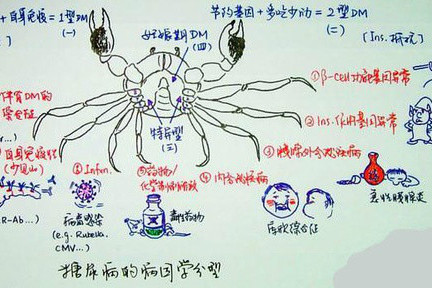 + 自身免疫 = 1型DM
(一)
妊娠期DM
(四)
节约基因 + 多吃少动 = 2型DM
(二)
[Ins.抵抗]
特异型
(三)
①β-cell功能基因异常
②Ins.作用基因异常
③胰腺外分泌疾病
④内分泌疾病
⑤药物/
⑥Infen.
伴有DM的
病毒感染
(e.g. Rubella,
CMV...)
毒性药物
库欣综合征
急性胰腺炎
R-Ab...)
糖尿病的病因学分型